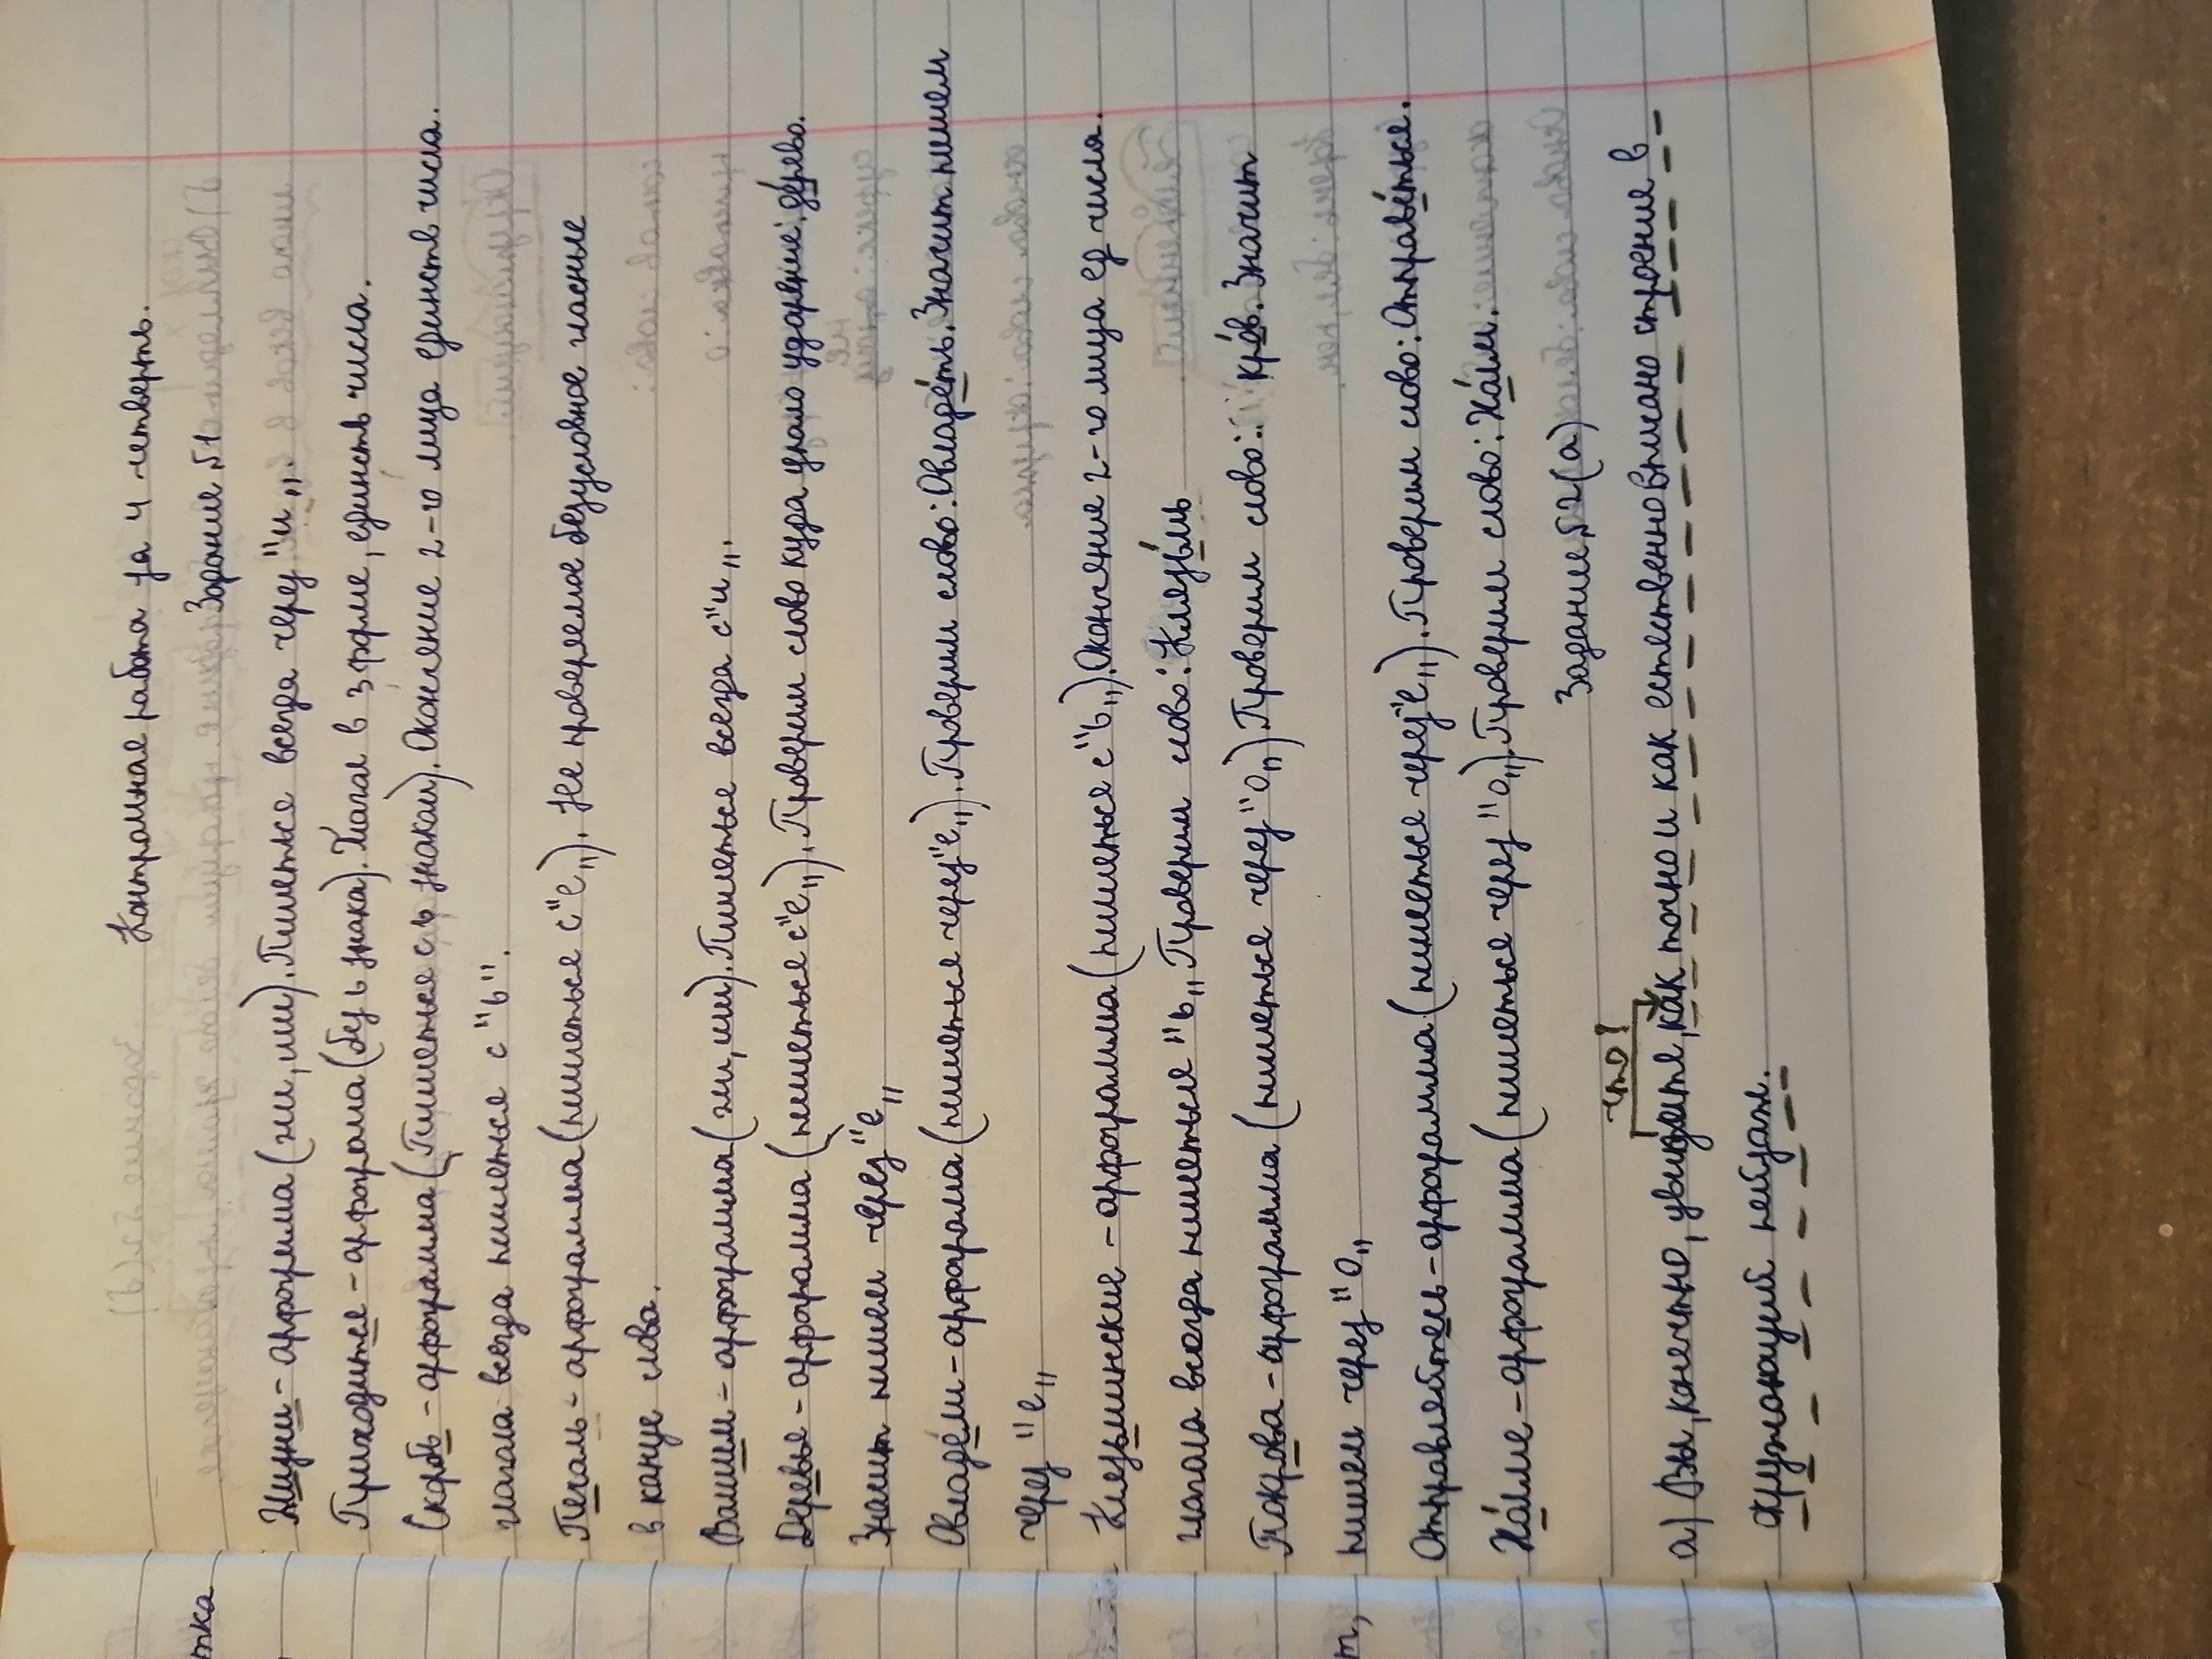 Контрольная работа за 4 четверть.
Задание №1
Жизни - орфограмма (жи, ши). Пишеться всегда через "и„.
Приходится - орфограмма (без ь знака). Глагол в 3 форме, единств числа.
Скорбь - орфограмма (Пишеться с ь знаком). Окончание 2-го лица единств числа.
глагола всегда пишеться с "ь".
Печаль - орфограмма (пишеться с "е„). Не проверяемое безусловное гласные
в конце слова.
Вашим - орфограмма (жи, ши). Пишеться всегда с "и„.
Деревья - орфограмма (пишеться с "е„). Проверим слово куда упало ударение: дерево.
Значит пишем через "е„
Овладели - орфограмма (пишеться через "е„). Проверим слово: Овладеть. Значит пишем
через "е„
- орфограмма (пишеться с "ь„). Окончание 2-го лица ед числа.
глагола всегда пишеться "ь„. Проверим слово:
Покрова - орфограмма (пишеться через "о„). Проверим слово: кров. Значит
пишем через "о„
- орфограмма (пишеться через "е„). Проверим слово:
- орфограмма (пишеться через "о„). Проверим слово:
Задание №2 (а)
что?
а) Вы, конечно, увидите, как точно и как естественно вписано строение в
окружающий пейзаж.
тка
т,